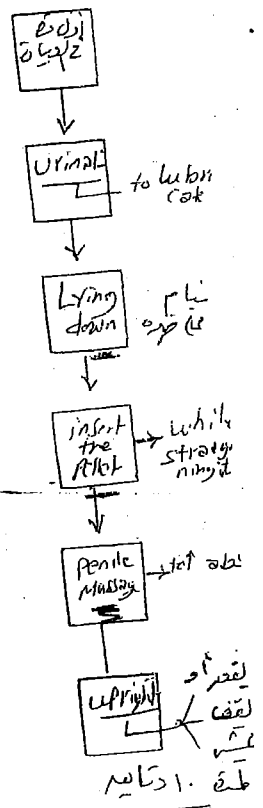 Urinate
to Lubri
cate
Lying
down
ينام
على ضهره
insert
the
Pellet
while
straighte
ning it
Penile
Massage
to ↑ abs
upright
يقعد أو
يقف
يمشي
لمدة ١٠ دقايق